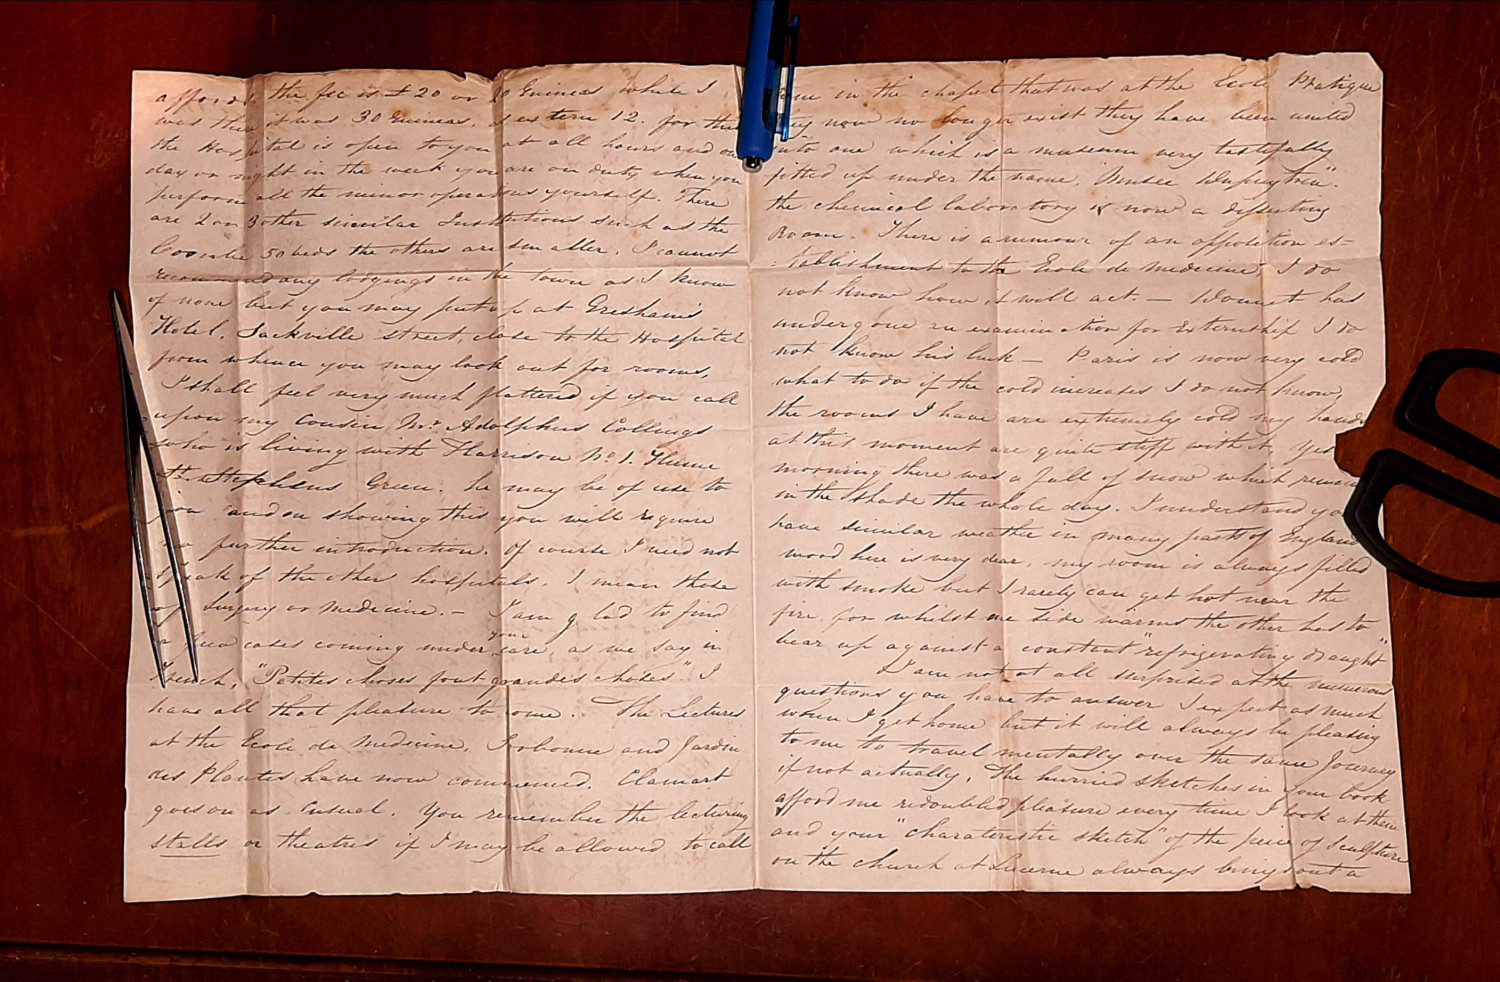 affords the fee is £20 or 20 Guineas while I
was there it was 30 Guineas. as extern 12. for this
the Hospital is open to you at all hours and one
day or night in the week you are on duty when you
perform all the minor operations yourself. There
are 2 or 3 other similar Institutions such as the
Coombe 50 beds the others are smaller. I cannot
recommend any lodgings in the town as I know
of none but you may put up at Gresham's
Hotel, Sackville street, close to the Hospital
from whence you may look out for rooms,
I shall feel very much flattered if you call
upon my Cousin Mr. Adolphus Collings
who is living with Harrison No. 1. Hume
St. Stephens Green. he may be of use to
you and on showing this you will require
no further introduction. Of course I need not
speak of the other hospitals. I mean those
of Surgery or Medicine. - I am glad to find
a few cases coming under your care, as we say in
French, "Petites choses font grandes choses" I
have all that pleasure to come. The Lectures
at the Ecole de Medicine, Sorbonne and Jardin
des Plantes have now commenced. Clamart
goes on as usual. You remember the lecturing
stalls or theatres if I may be allowed to call
one in the chapel that was at the Ecole Pratique
they now no longer exist they have been united
into one which is a museum very tastefully
fitted up under the name, "Musee Dupuytren".
the chemical laboratory is now a dissecting
Room. There is a rumour of an opposition es=
=tablishment to the Ecole de Medicine, I do
not know how it will act. — Womet has
undergone an examination for Externship I do
not know his luck — Paris is now very cold
what to do if the cold increases I do not know,
the rooms I have are extremely cold my hands
at this moment are quite stiff with it, Yes
morning there was a fall of snow which remain
in the shade the whole day. I understand you
have similar weather in many parts of England
wood here is very dear, my room is always filled
with smoke but I rarely can get hot near the
fire, for whilst one side warms the other has to
bear up against a constant "refrigerating draught"
I am not at all surprised at the numerous
questions you have to answer I expect as much
when I get home but it will always be pleasing
to me to travel mentally over the same Journey
if not actually. The hurried sketches in your book
afford me redoubled pleasure every time I look at them
and your "charateristic sketch" of the piece of sculpture
on the church at Lucerne always brings out a